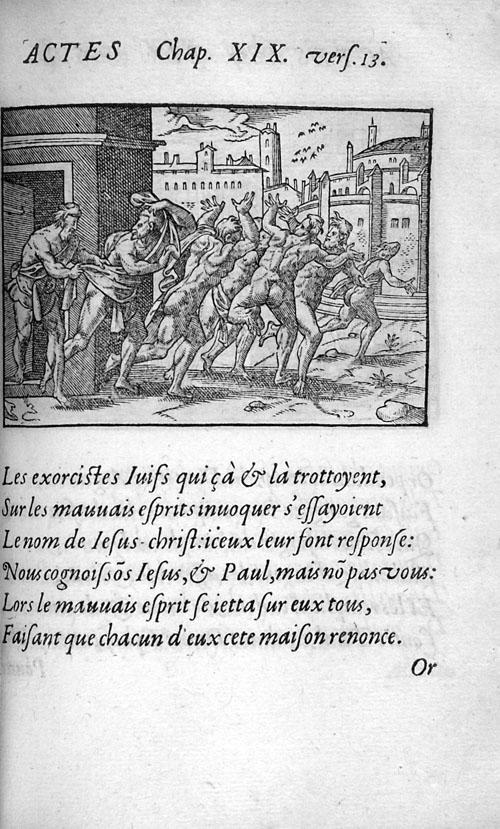 ACTES Chap. XIX. verſ. 13.
Les exorciſtes Iuifs qui çà & là trottoyent,
Sur les mauuais eſprits inuoquer s'eſſayoient
Le nom de Ieſus-chriſt: iceux leur font reſponſe:
Nous cognoiſsõs Ieſus, & Paul, mais nõ pas vous:
Lors le mauuais eſprit ſe ietta ſur eux tous,
Faiſant que chacun d'eux cete maiſon renonce.
Or